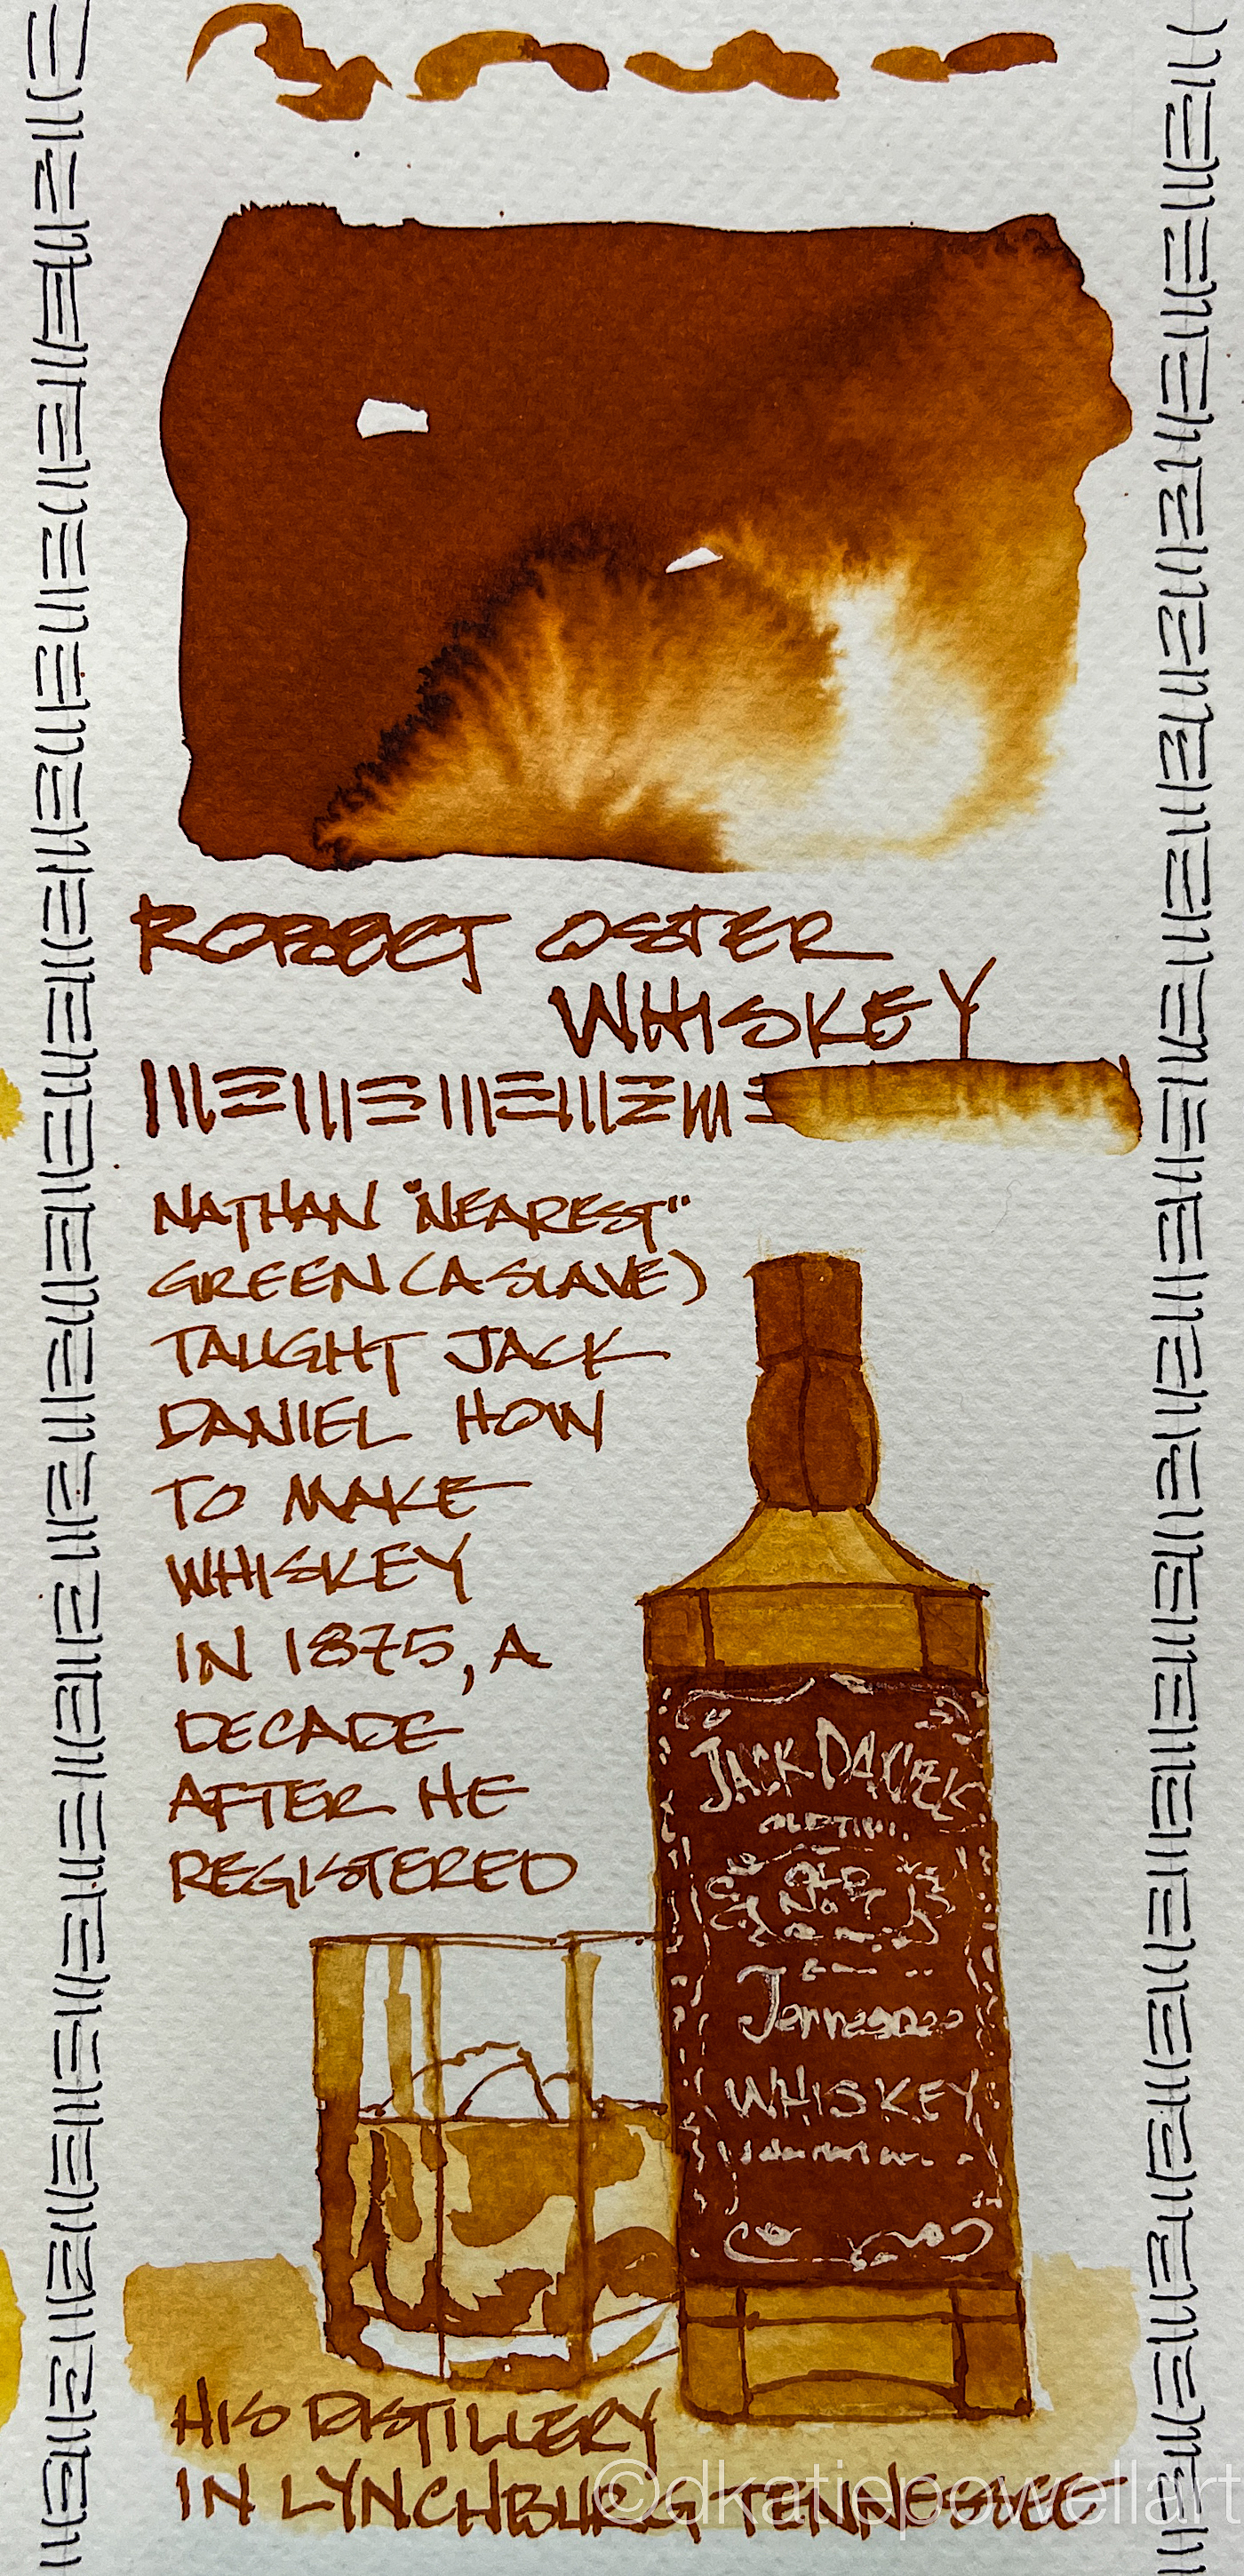 ROBERT OSTER
WHISKEY
NATHAN "NEAREST"
GREEN (A SLAVE)
TAUGHT JACK
DANIEL HOW
TO MAKE
WHISKEY
IN 1875, A
DECADE
AFTER HE
REGISTERED
JACK DANIEL
OLD
No 7
Tennessee
WHISKEY
HIS DISTILLERY
IN LYNCHBURG, TENNESSEE
©dkatiepowellart